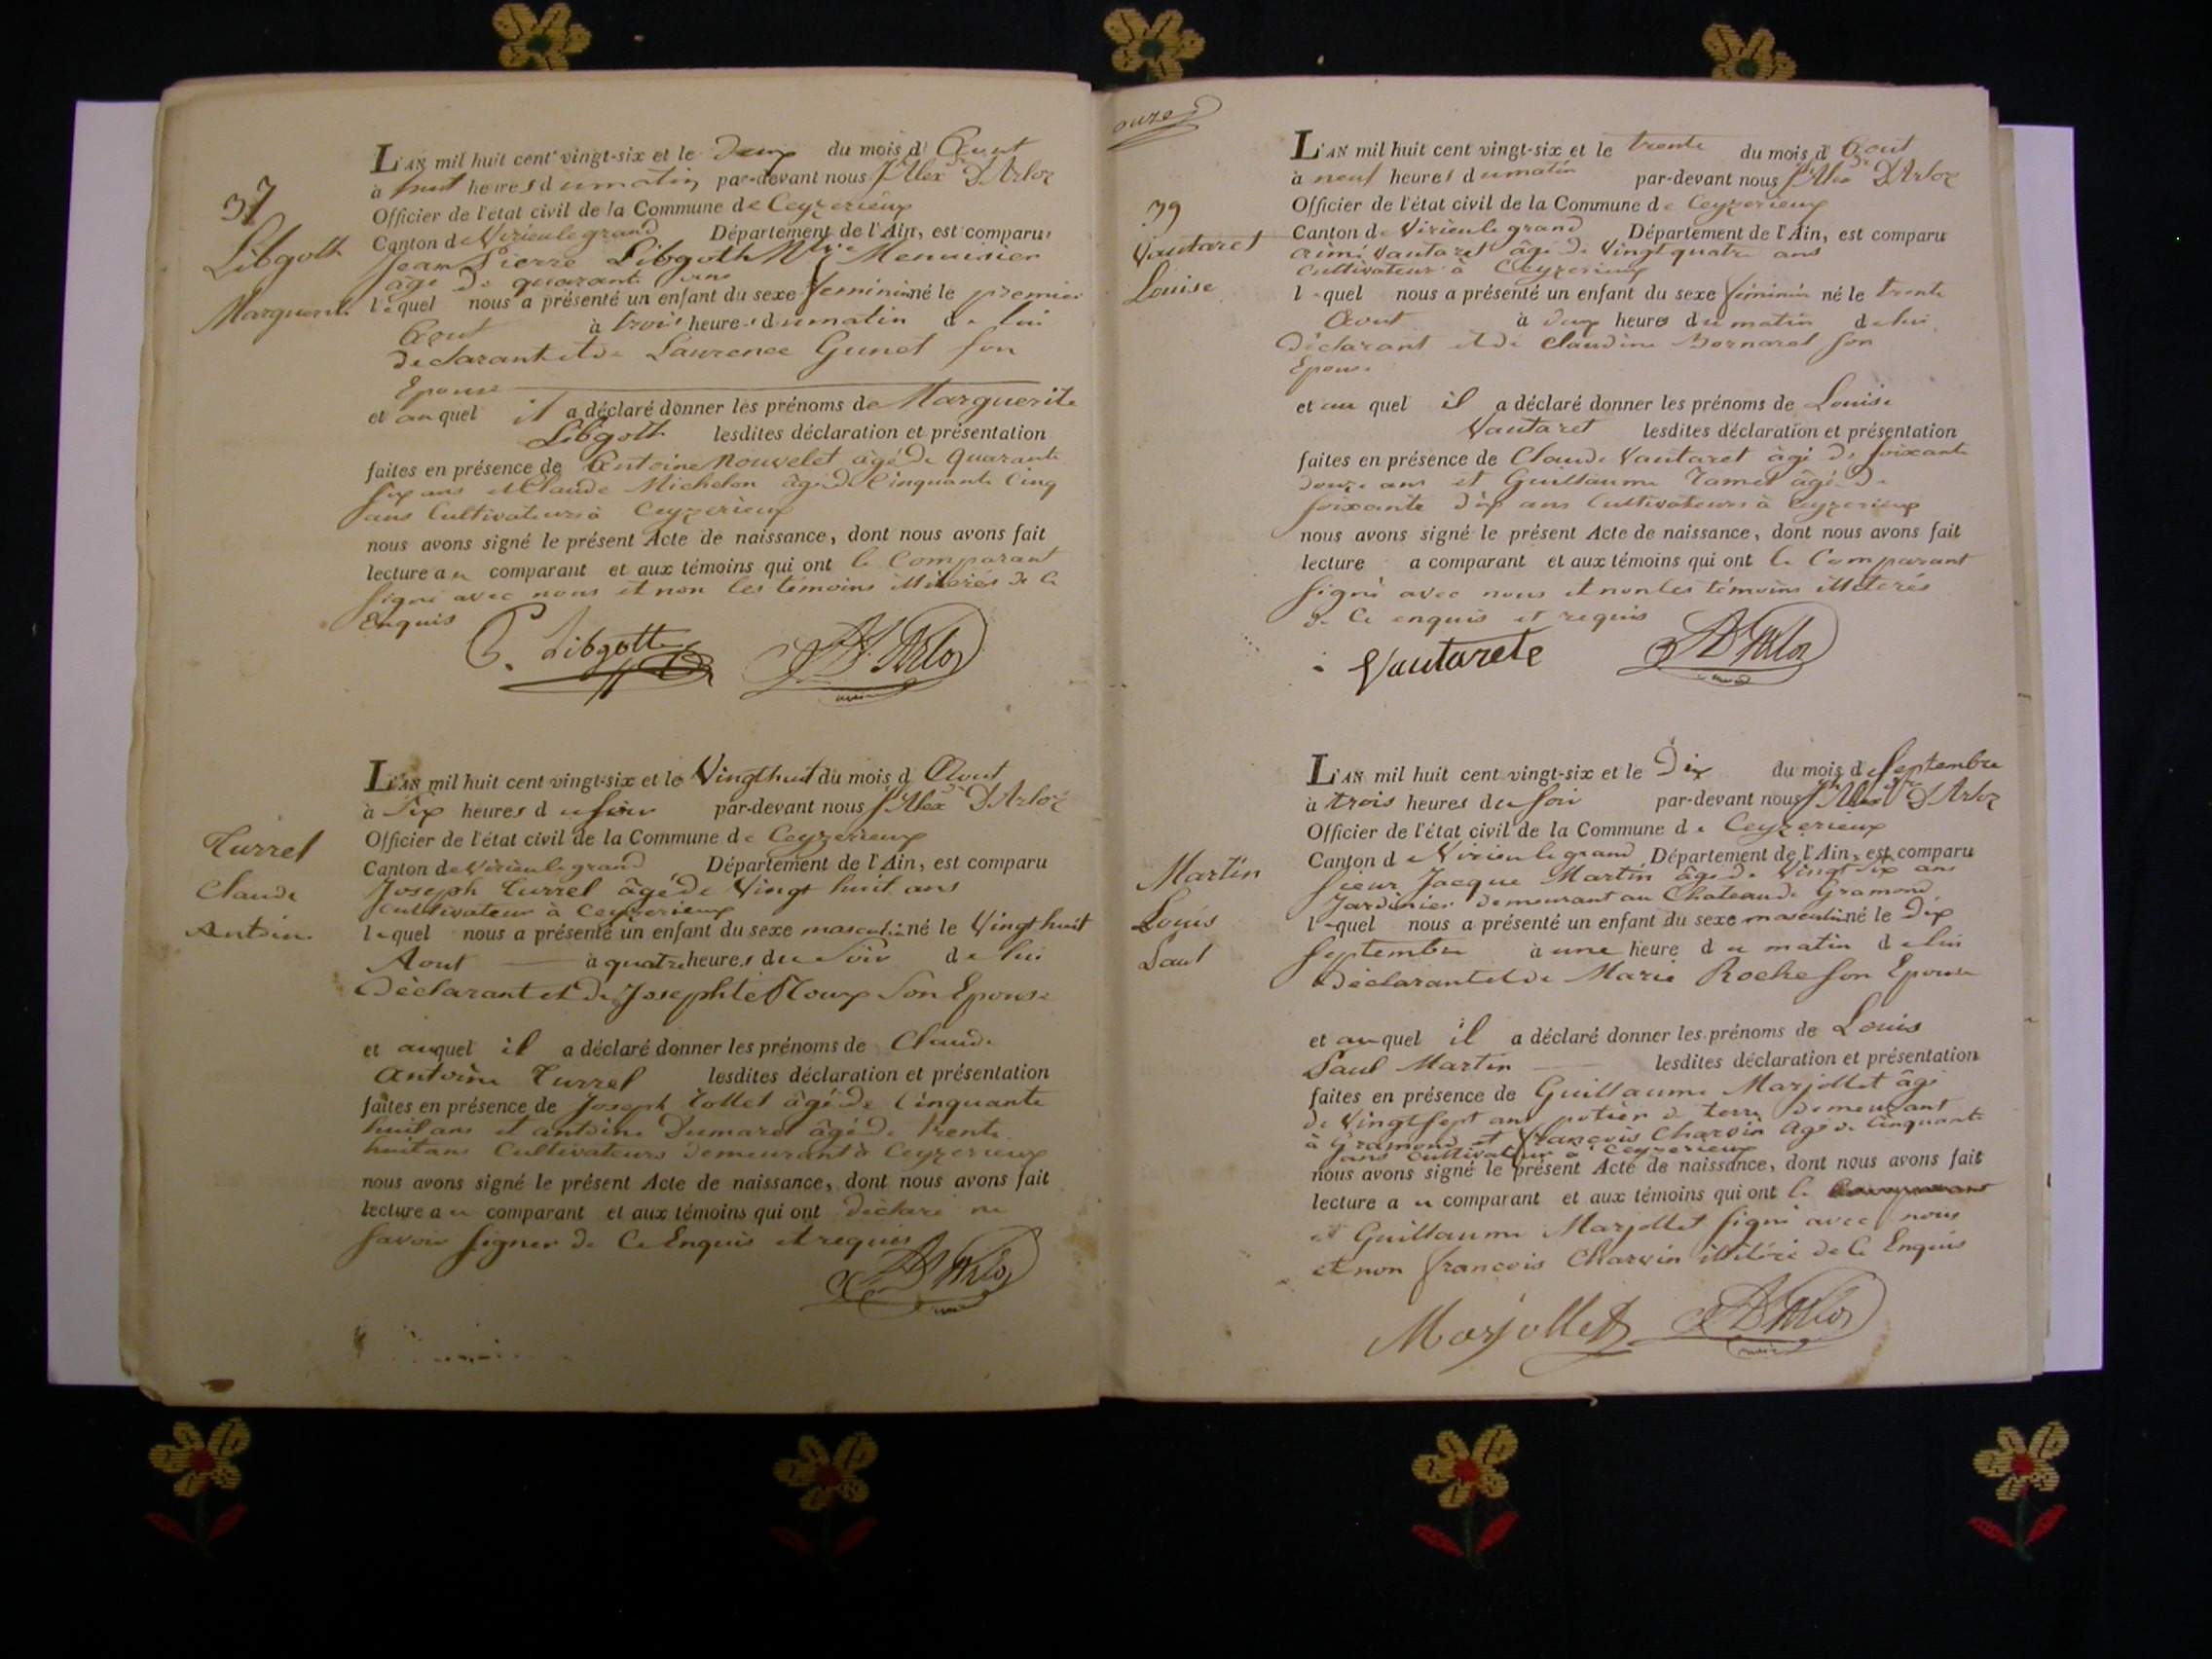 37
Libgolt
Marguerite
L'AN mil huit cent vingt-six et le Deux du mois d'Aout
à huit heures du matin par-devant nous Jh Alexdre D'Arloz
Officier de l'état civil de la Commune de Ceyzerieux
Canton de Virieu le grand Département de l'Ain, est comparu
Jean Pierre Libgolt Menuisier
âgé de quarante ans
lequel nous a présenté un enfant du sexe feminin né le premier
Aout à trois heures du matin de lui
declarant et de Laurence Gunet son
Epouse
et auquel il a déclaré donner les prénoms de Marguerite
Libgolt lesdites déclaration et présentation
faites en présence de Antoine Nouvelet âgé de quarante
six ans et Claude Michelon âgé de Cinquante Cinq
ans Cultivateurs à Ceyzerieux
nous avons signé le présent Acte de naissance, dont nous avons fait
lecture au comparant et aux témoins qui ont le Comparant
signé avec nous et non les témoins illiterés de ce
Enquis
P. Libgolt
Turrel
Claude
Antoine
L'AN mil huit cent vingt-six et le Vingt huit du mois d Aout
à Six heures du soir par-devant nous Jh Alexdre D'Arloz
Officier de l'état civil de la Commune de Ceyzerieux
Canton de Virieu le grand Département de l'Ain, est comparu
Joseph Turrel âgé de Vingt huit ans
cultivateur à Ceyzerieux
lequel nous a présenté un enfant du sexe masculin né le Vingt huit
Aout à quatre heures du Soir de lui
Déclarant et de Josephte Roux Son Epouse
et auquel il a déclaré donner les prénoms de Claude
Antoine Turrel lesdites déclaration et présentation
faites en présence de Joseph Tollet âgé de Cinquante
huit ans et antoine Dumarest âgé de trente
huit ans Cultivateurs demeurant à Ceyzerieux
nous avons signé le présent Acte de naissance, dont nous avons fait
lecture au comparant et aux témoins qui ont déclaré ne
savoir signer de Ce Enquis et requis
onze
39
Vautaret
Louise
L'AN mil huit cent vingt-six et le trente du mois d'Aout
à neuf heures du matin par-devant nous Jh Alexdre D'Arloz
Officier de l'état civil de la Commune de Ceyzerieux
Canton de Virieu le grand Département de l'Ain, est comparu
aimé Vautaret âgé de Vingt quatre ans
Cultivateur à Ceyzerieux
lequel nous a présenté un enfant du sexe féminin né le trente
Aout à deux heures du matin de lui
Déclarant et de Claudine Bornarel son
Epouse
et au quel il a déclaré donner les prénoms de Louise
Vautaret lesdites déclaration et présentation
faites en présence de Claude Vautaret âgé de soixante
douze ans et Guillaume Tamet âgé de
soixante dix ans Cultivateurs à Ceyzerieux
nous avons signé le présent Acte de naissance, dont nous avons fait
lecture a comparant et aux témoins qui ont le Comparant
signé avec nous et non les témoins illiterés
de Ce enquis et requis
Vautarete
Martin
Louis
Paul
L'AN mil huit cent vingt-six et le Dix du mois de Septembre
à trois heures du soir par-devant nous Jh Alexdre D'Arloz
Officier de l'état civil de la Commune de Ceyzerieux
Canton d Virieu le grand Département de l'Ain, est comparu
sieur Jacque Martin âgé de Vingt Six ans
Jardinier demeurant au Chateau de Gramond
lequel nous a présenté un enfant du sexe masculin né le Dix
Septembre à une heure du matin de lui
déclarant et de Marie Roche son Epouse
et auquel il a déclaré donner les prénoms de Louis
Paul Martin lesdites déclaration et présentation
faites en présence de Guillaume Marjollet âgé
de Vingt sept ans potier de terre demeurant
à Gramond et françois Charvin âgé de Cinquante
ans Cultivateur à Ceyzerieux
nous avons signé le présent Acte de naissance, dont nous avons fait
lecture au comparant et aux témoins qui ont le
et Guillaume Marjollet signé avec nous
et non françois Charvin illitéré de Ce Enquis
Marjollet